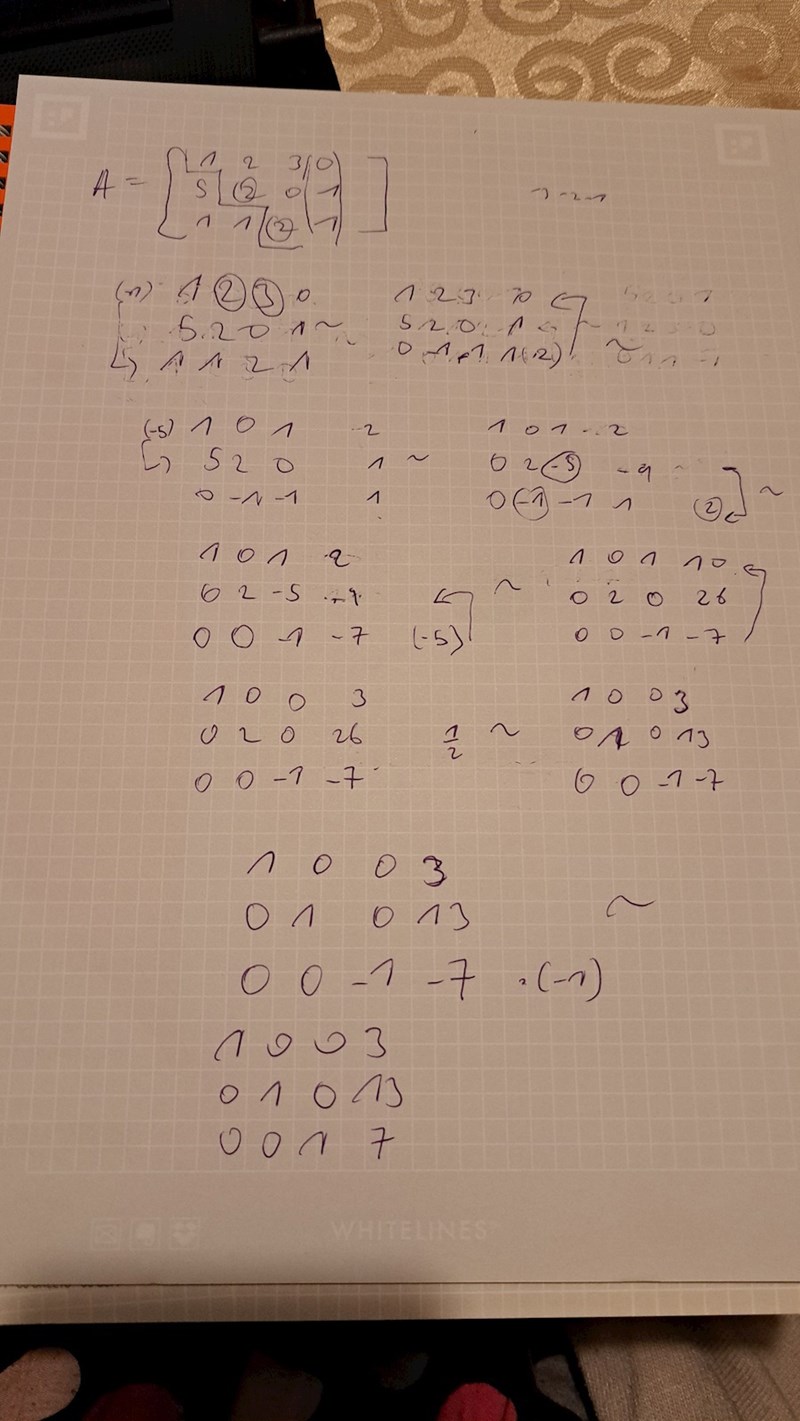 A = [ 1 2 3 | 0 ]
5 (2) 0 | -1
1 1 (2) | -1
1 - 2 1
(-1) 1 (2) (3) 0 1 2 3 0
5 2 0 1 ~ 5 2 0 1 ~
1 1 2 1 0 -1 -1 1 (2) ~
(-5) 1 0 1 -2 1 0 1 -2
5 2 0 1 ~ 0 2 (-5) -9 ~
0 -1 -1 1 0 (-1) -1 1 (2)
1 0 1 2 1 0 1 10
0 2 -5 -9 ~ 0 2 0 26
0 0 -1 -7 (-5) 0 0 -1 -7
1 0 0 3 1 0 0 3
0 2 0 26 1/2 ~ 0 1 0 13
0 0 -1 -7 0 0 -1 -7
1 0 0 3
0 1 0 13 ~
0 0 -1 -7 .(-1)
1 0 0 3
0 1 0 13
0 0 1 7
WHITELINES